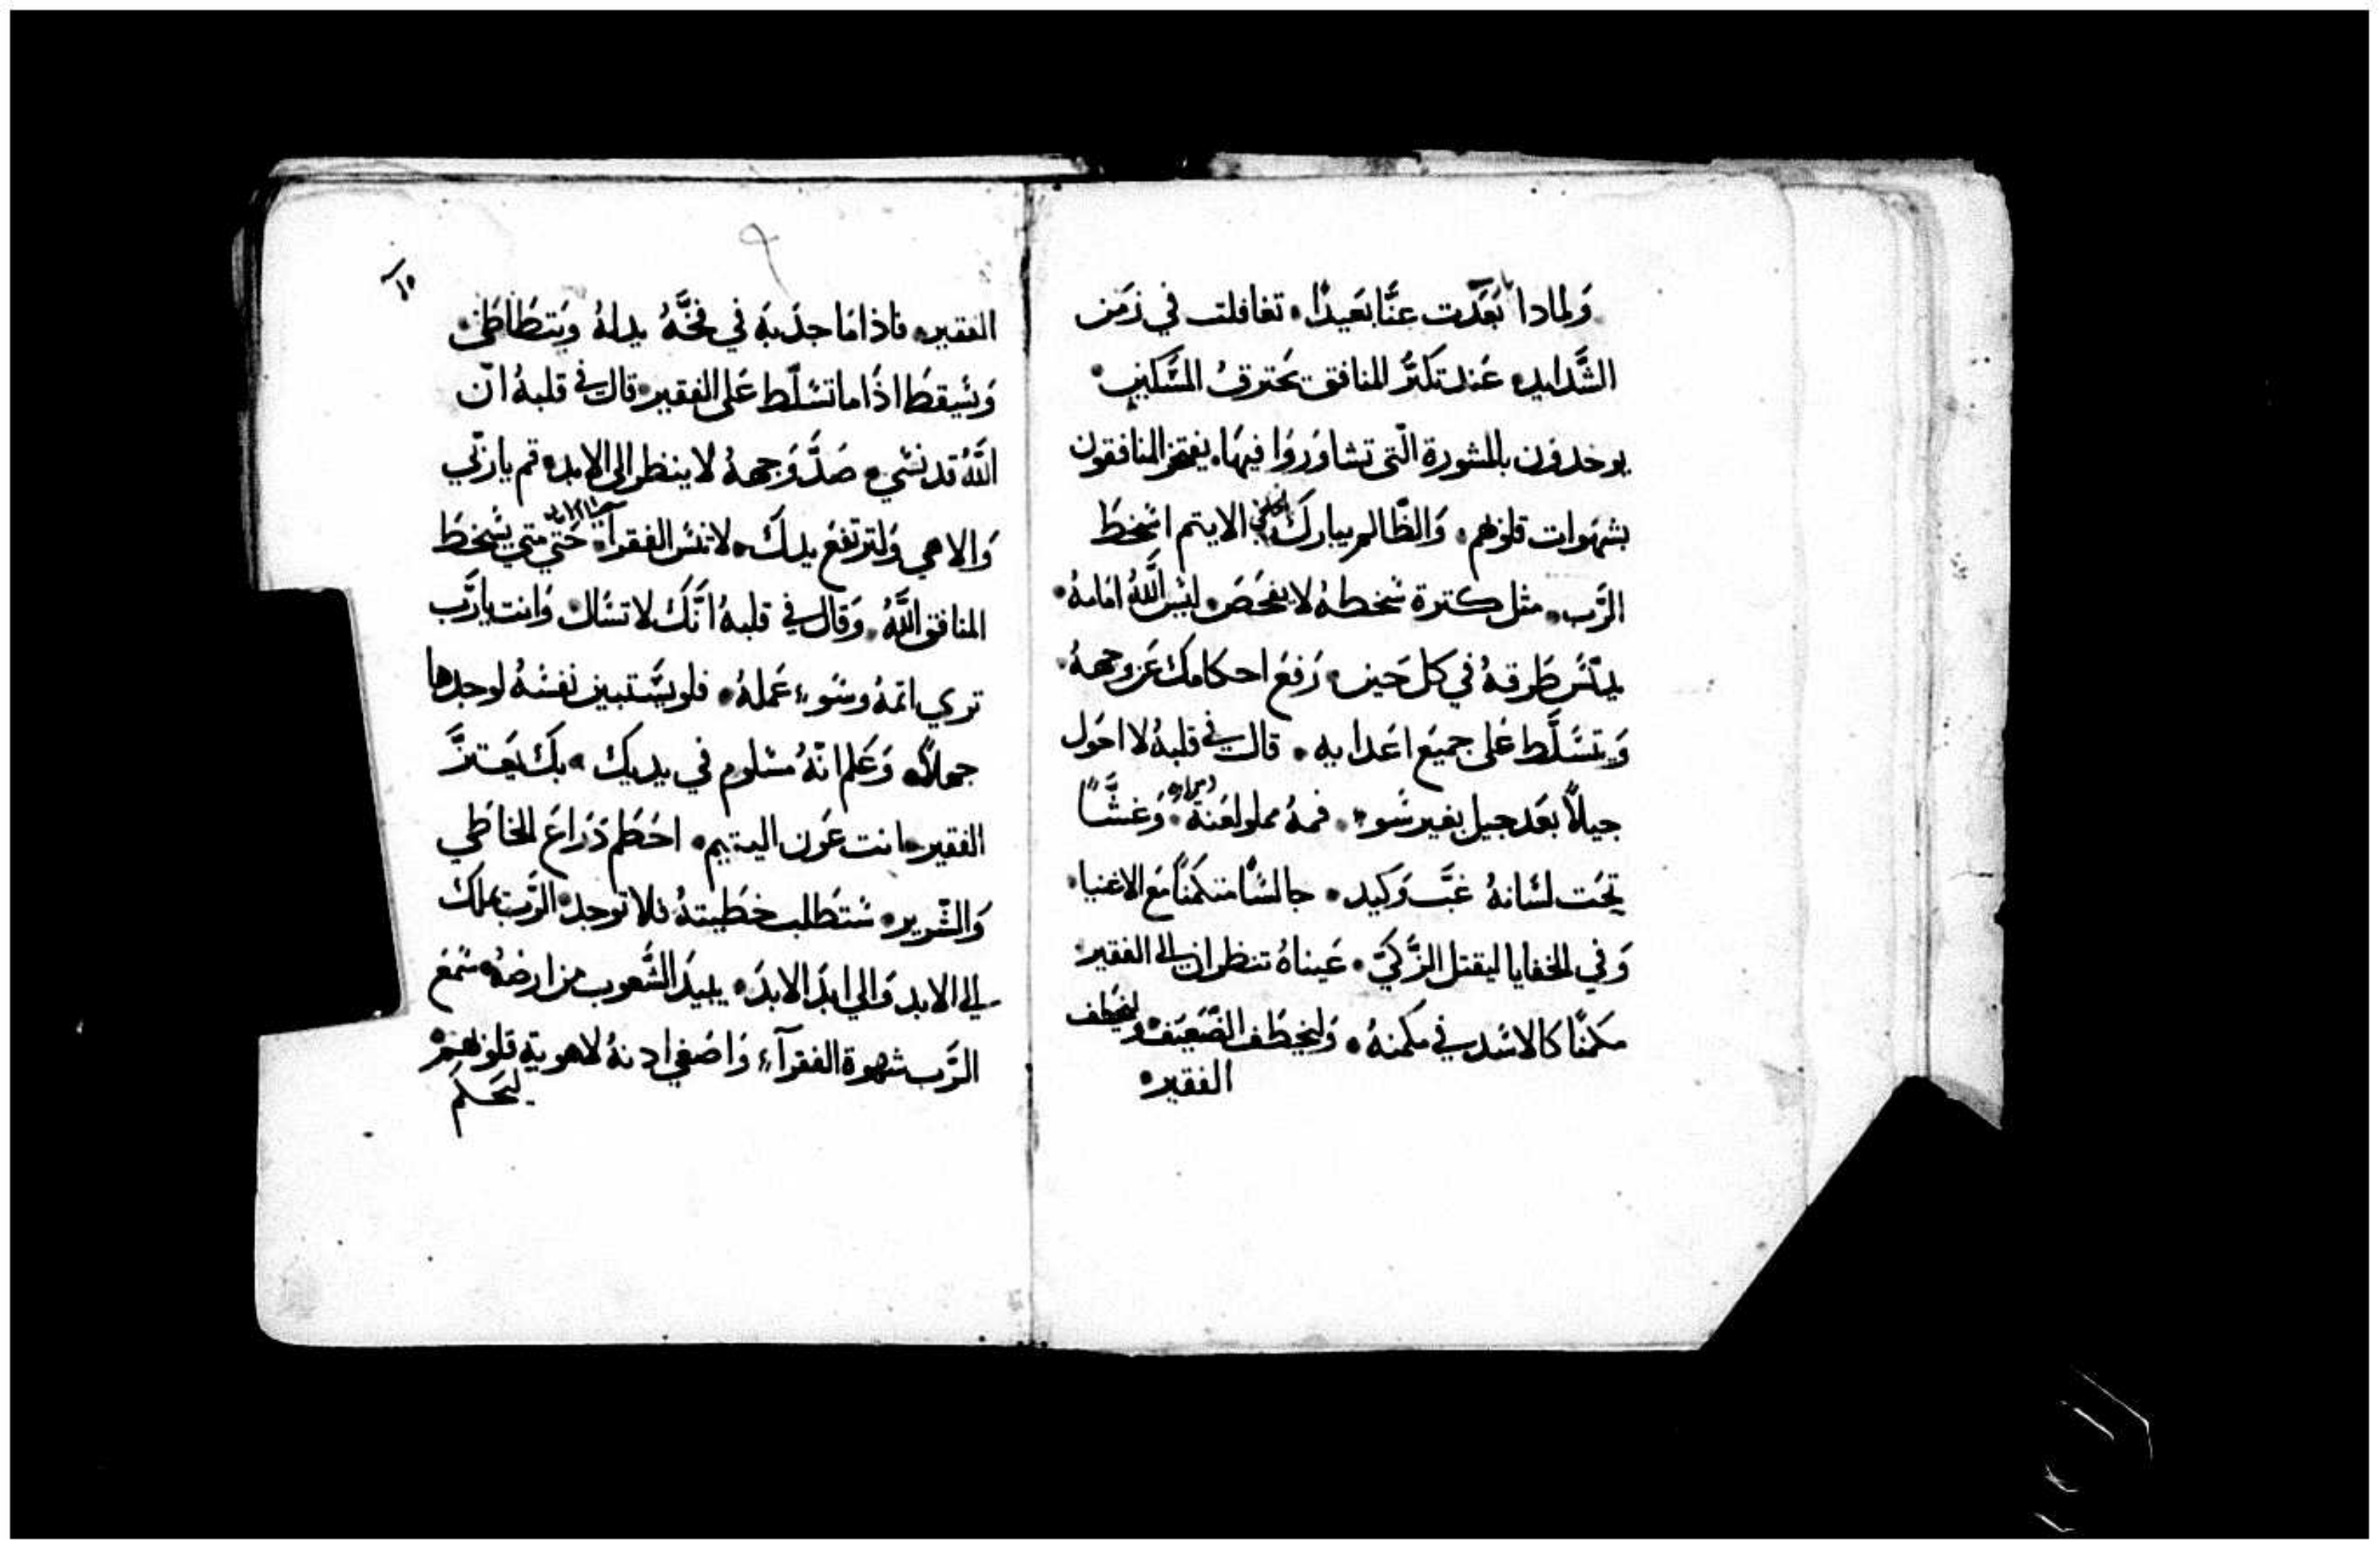 وَلماذا بَعَدّت عنَّا بعَيدًا • تغافلت في زمَن
الشَّدايد • عَند تكبّر المنافق يَحترقُ المسَّكين •
يوخدون بالمشورة الّتي تشاوَروُا فيهَا • يفتخر المنافقون
بشهَوات قلوبهم • وَالظّالم يبارك الايتم اسَّخطَ
الرَّب • مثل كترة سَّخطهُ لا يفحَص • ليسَ اللَّهُ امَامهُ •
يدنّسَ طرقهُ في كل حَين • رَفعَ احكامك عَن وجههُ •
وَيتسَلَّط عَلى جميعَ اعَدايه • قال في قلبهُ لا احَول
جيلاً بعَد جيل بغير سَوء • فمهُ مملو لعَنة وَغشًّا
تحَت لسَانهُ غبَّ وَكيد • جالسًا متكمنًا مَع الاغنيا •
وَفي الخفايا ليقتل الزَّكيّ • عَيناهُ تنظران الى الفقير •
مكمنًا كالاسَد في مكمنهُ • وَليخطَف الضَّعَيف • وليخَطف
الفقير •
١٥
الفقير • فاذا مَا جدَبهَ في فخَّهُ يدلهُ وَيتطَاطَئ •
وَيسَقطَ اذَا ما تسَلّط عَلى الفقير • قال في قلبهُ انّ
اللَّهُ قد نسَي • صَدَّ وَجههُ لا ينظر الى الابد • قم يا ربّي
وَالاهي وَلترتفعَ يدك • لا تنسَ الفقرآ • حَتّي متي يسَّخطَ
المنافق اللَّهُ • وَقال في قلبهُ انَّكَ لا تسَال • وَانت يا رَّب
تري اتمهُ وسَوء عَملهُ • فلو يسَّتبين نفسَهُ لوجدها
جهلاً • وَعَلم انّهُ مسَلوم في يديك • بك يَعَتزَّ
الفقير • انت عَون اليتيم • احَطم ذَراعَ الخاطي
وَالشّرير • سَتطلب خطَيتهُ فلا توجد • الرَّب يملك
الى الابد وَالي ابدَ الابدَ • يبيدَ الشُّعوب من ارضهُ • سَمعَ
الرَّب شهوة الفقرآء وَاصَغي ادنهُ لاهوية قلوبهم •
ليَحَكم